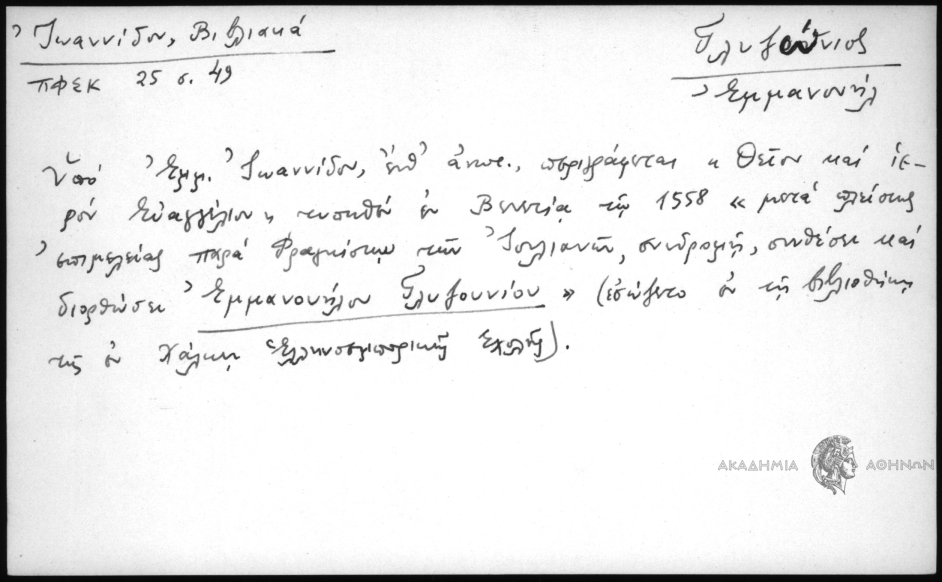 Ἰωαννίδου, Βιβλιακά
ΠΦΣΚ 25 σ. 49
Γλυζούνιος
Ἐμμανουήλ
Ὑπό Ἐμμ. Ἰωαννίδου, ἐνθ᾽ ἀνωτ., περιγράφεται « Θεῖον καί ἱε-
ρόν Εὐαγγέλιον », τυπωθέν ἐν Βενετίᾳ τῷ 1558 « μετά πλείστης
ἐπιμελείας παρά Φραγκίσκῳ τῶν Ἰουλιανῶν, συνδρομῇ, συνθέσει καί
διορθώσει Ἐμμανουήλου Γλυζουνίου » (ἐσώζετο ἐν τῇ βιβλιοθήκῃ
τῆς ἐν Χάλκῃ Ἑλληνοεμπορικῆς Σχολῆς).
ΑΚΑΔΗΜΙΑ ΑΘΗΝΩΝ